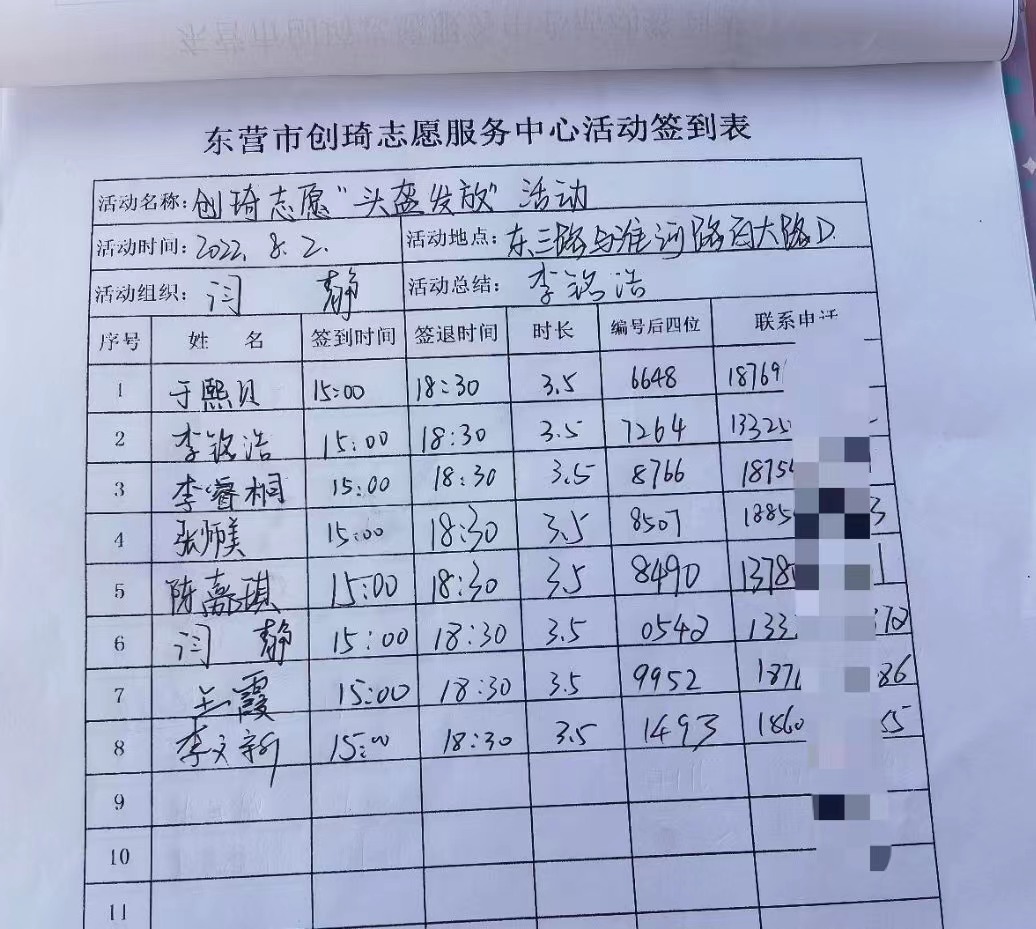 东营市创琦志愿服务中心活动签到表
活动名称：创琦志愿"头盔发放"活动
活动时间：2022.8.2. 活动地点：东三路与淮河路西大路口
活动组织：闫 静 活动总结：李铭浩
序号 姓 名 签到时间 签退时间 时长 编号后四位 联系电话
1 于熙贝 15:00 18:30 3.5 6648 18769
2 李铭浩 15:00 18:30 3.5 7264 1332
3 李睿桐 15:00 18:30 3.5 8766 1875
4 张师美 15:00 18:30 3.5 8507 1385 3
5 陈嘉琪 15:00 18:30 3.5 8490 1378 1
6 闫 静 15:00 18:30 3.5 0542 133 372
7 王霞 15:00 18:30 3.5 9952 187 86
8 李文新 15:00 18:30 3.5 1493 1860 55
9
10
11